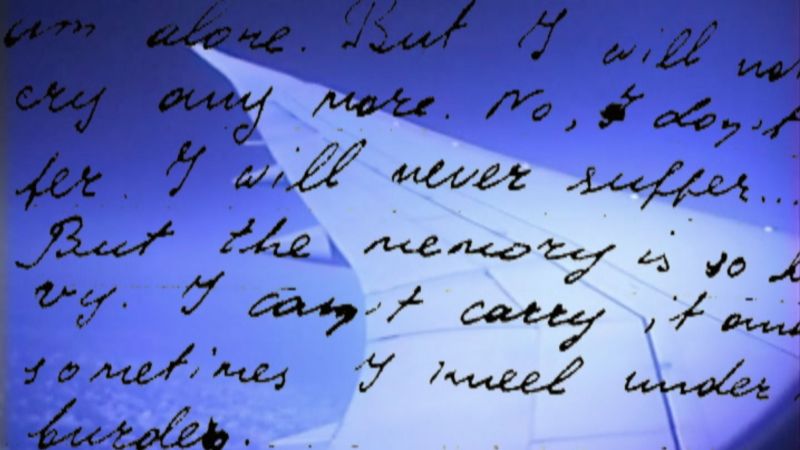 am alone. But I will not
cry any more. No, I don't
fer. I will never suffer...
But the memory is so
vy. I can't carry it and
sometimes I kneel under
burden.